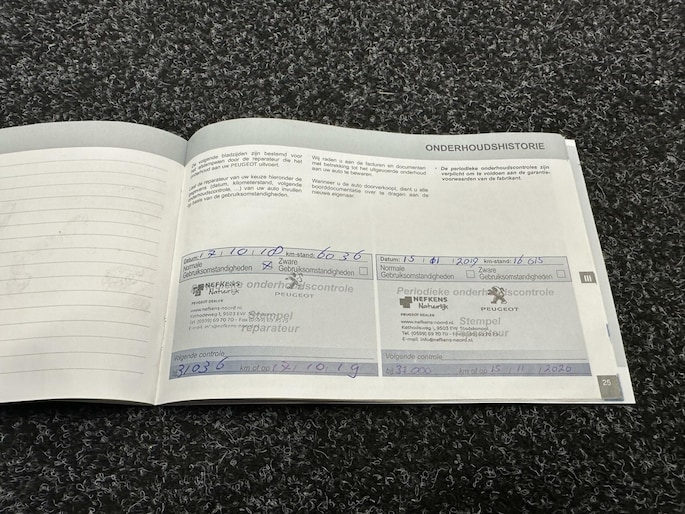 ONDERHOUDSHISTORIE
De volgende bladzijden zijn bestemd voor
het afstempelen door de reparateur die het
onderhoud aan uw PEUGEOT uitvoert.
Laat de reparateur van uw keuze hieronder de
gegevens (datum, kilometerstand, volgende
onderhoudscontrole, ...) van uw auto invullen
op basis van de gebruiksomstandigheden.
Wij raden u aan de facturen en documenten
met betrekking tot het uitgevoerde onderhoud
aan uw auto te bewaren.
Wanneer u de auto doorverkoopt, dient u alle
boorddocumentatie over te dragen aan de
nieuwe eigenaar.
• De periodieke onderhoudscontroles zijn
verplicht om te voldoen aan de garantie-
voorwaarden van de fabrikant.
Datum: 17 10 18 km-stand: 6036
Normale
Gebruiksomstandigheden
Zware
Gebruiksomstandigheden
onderhoudscontrole
NEFKENS
Natuurlijk
PEUGEOT
PEUGEOT DEALER
www.nefkens-noord.nl
Kathodeweg 1, 9503
Tel. (0599) 69 70 70
Stempel
reparateur
Volgende controle
31036 km of op 17 10 19
Datum: 15 11 2019 km-stand: 16 015
Normale
Gebruiksomstandigheden
Zware
Gebruiksomstandigheden
Periodieke onderhoudscontrole
NEFKENS
Natuurlijk
PEUGEOT
PEUGEOT DEALER
www.nefkens-noord.nl
Kathodeweg 1, 9503 PW Stadskanaal
Tel. (0599) 69 70 70
E-mail. info@nefkens-noord.nl
Stempel
Volgende controle
bij 31.000 km of op 15 11 2020
III
25